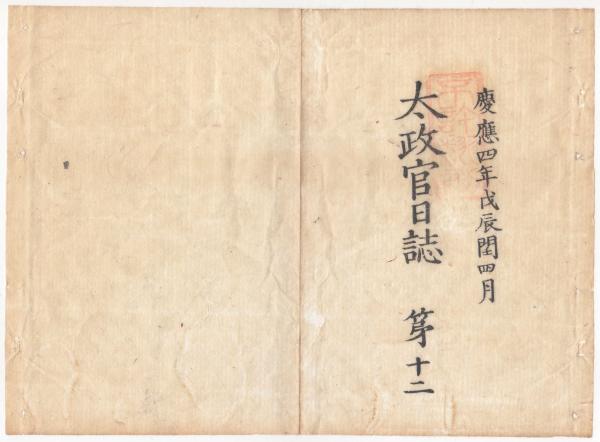 慶應四年戊辰閏四月
太政官日誌 第十二